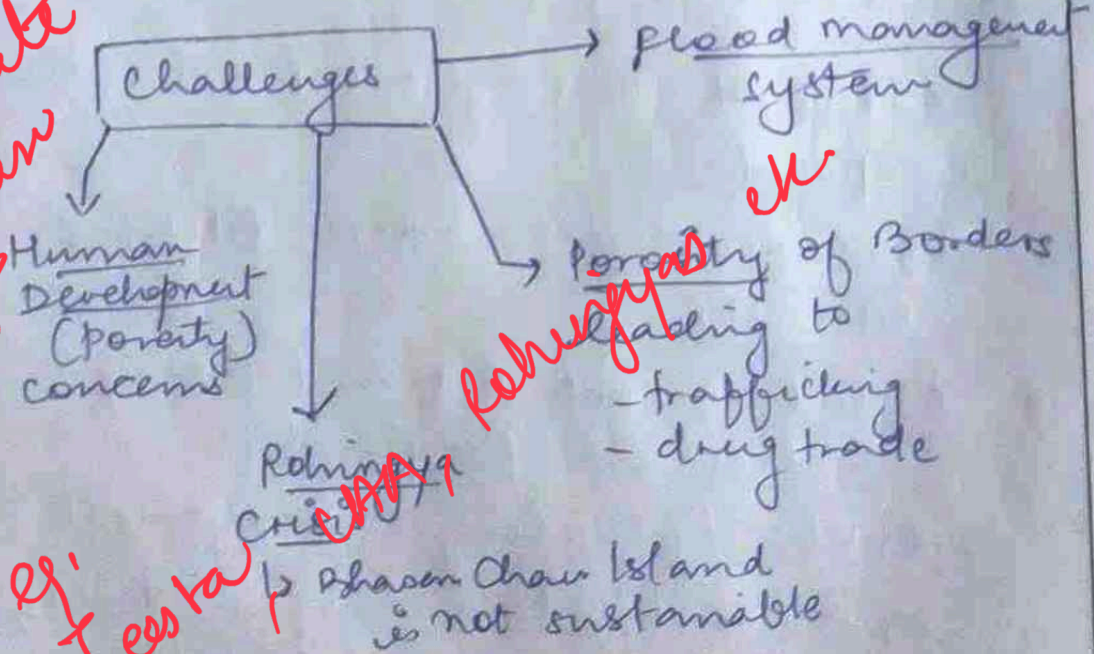 Challenges
flood management
system
Human
Development
(Poverty)
concerns
Porosity of Borders
leading to
- trafficking
- drug trade
Rohingya
Crisis
↳ Bhasan Char Island
is not sustainable
eg.
Teesta, CAA, Rohingyas etc